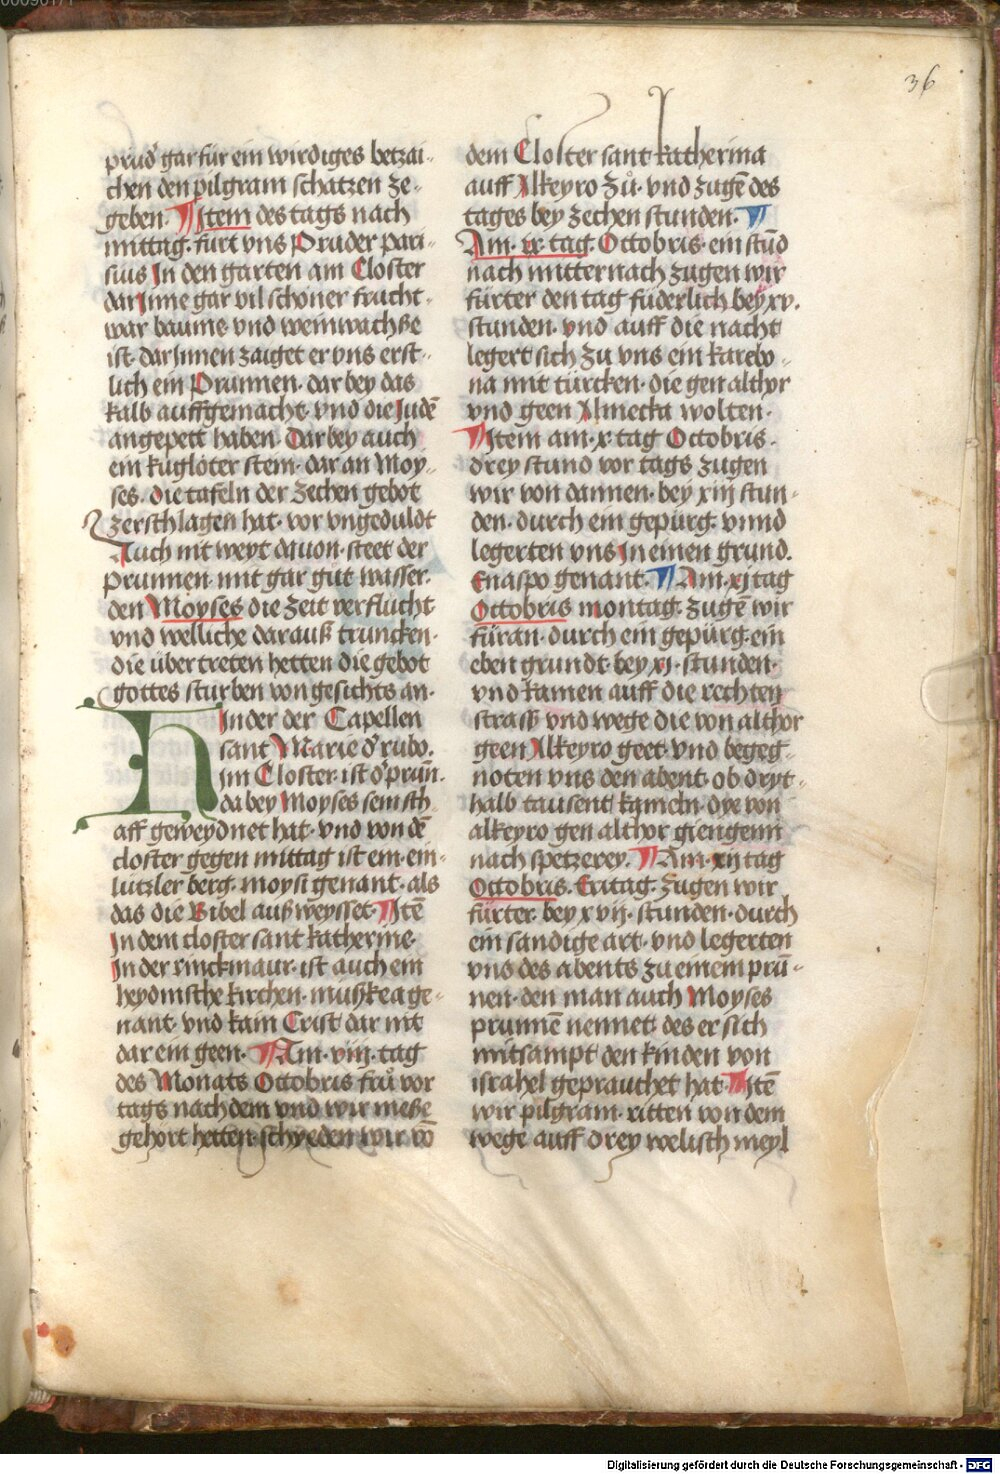 36
prud̄ gar für ein wirdiges betzai-
chen den pilgram schatzen ze-
geben. Item des tags nach
mittag. furt vns Pruder pari-
sius In den garten am Closter
dar Inne gar vil schoner frucht-
war baume vnd weinwachße
ist. dar Innen zaiget er vns erst-
lich ein Prunnen. dar bey das
kalb auffgemacht vnd die Judē
angepett haben. Darbey auch
ein kugloter stein. dar an Moy-
ses. die tafeln der zechen gebot
zerschlagen hat. vor vngeduldt
Auch nit weyt dauon. steet der
prunnen. mit gar gůt wasser.
den Moyses die zeit verflucht
vnd welliche darauß truncken.
die übertreten hetten die gebot
gottes sturben von gesichts an.
Hinder der Capellen
sant Marie d̄ rubo.
im Closter. ist d̄ prun̄.
da bey Moyses sein sch-
aff geweydnet hat. vnd von dē
closter gegen mittag ist ein. ein-
lützler berg. moysi genant. als
das die Bibel auß weysset. Itē
In dem closter sant katherine.
In der rinckmaur. ist auch ein
heydnische kirchen. mußkea ge-
nant. vnd kain Crist dar nit
dar ein geen. Am. viij. tag
des Monats Octobris frů vor
tags nach dem vnd wir meße
gehort hetten. schyeden wir vō
dem Closter sant katherina
auff Alkeyro zů. vnd zugē des
tages bey zechen stunden.
Am. ix. tag. Octobris. ein stūd
nach mitternach zugen wir
fürter den tag fuderlich bey xv.
stunden. vnd auff die nacht
legert sich zu vns ein karebo-
na mit türcken. die gen althor
vnd geen Almecka wolten.
Item am. x. tag Octobris.
drey stund vor tags zugen
wir von dannen. bey xiij stun-
den. durch ein gepürg. vnnd
legerten vns In einen grund.
Enaspo genant. Am. xj tag
Octobris montag. zugē wir
füran. durch ein gepürg. ein
eben grundt. bey xj. stunden.
vnd kamen auff die rechten
straß vnd wege die von althor
geen Alkeyro geet. vnd begeg-
noten vns den abent. ob dryt-
halb tausent kameln. dye von
alkeyro gen althor giengenn
nach spetzerey. Am. xij tag
Octobris. Eritag. zugen wir
fürter. bey xvij. stunden. durch
ein sandige art. vnd legerten
vns des abents zu einem prū-
nen. den man auch Moyses
prunnē nennet. des er sich
mitsampt den kinden von
israhel geprauchet hat. Itē
wir pilgram. ritten von dem
wege auff drey welisch meyl
Digitalisierung gefördert durch die Deutsche Forschungsgemeinschaft - DFG